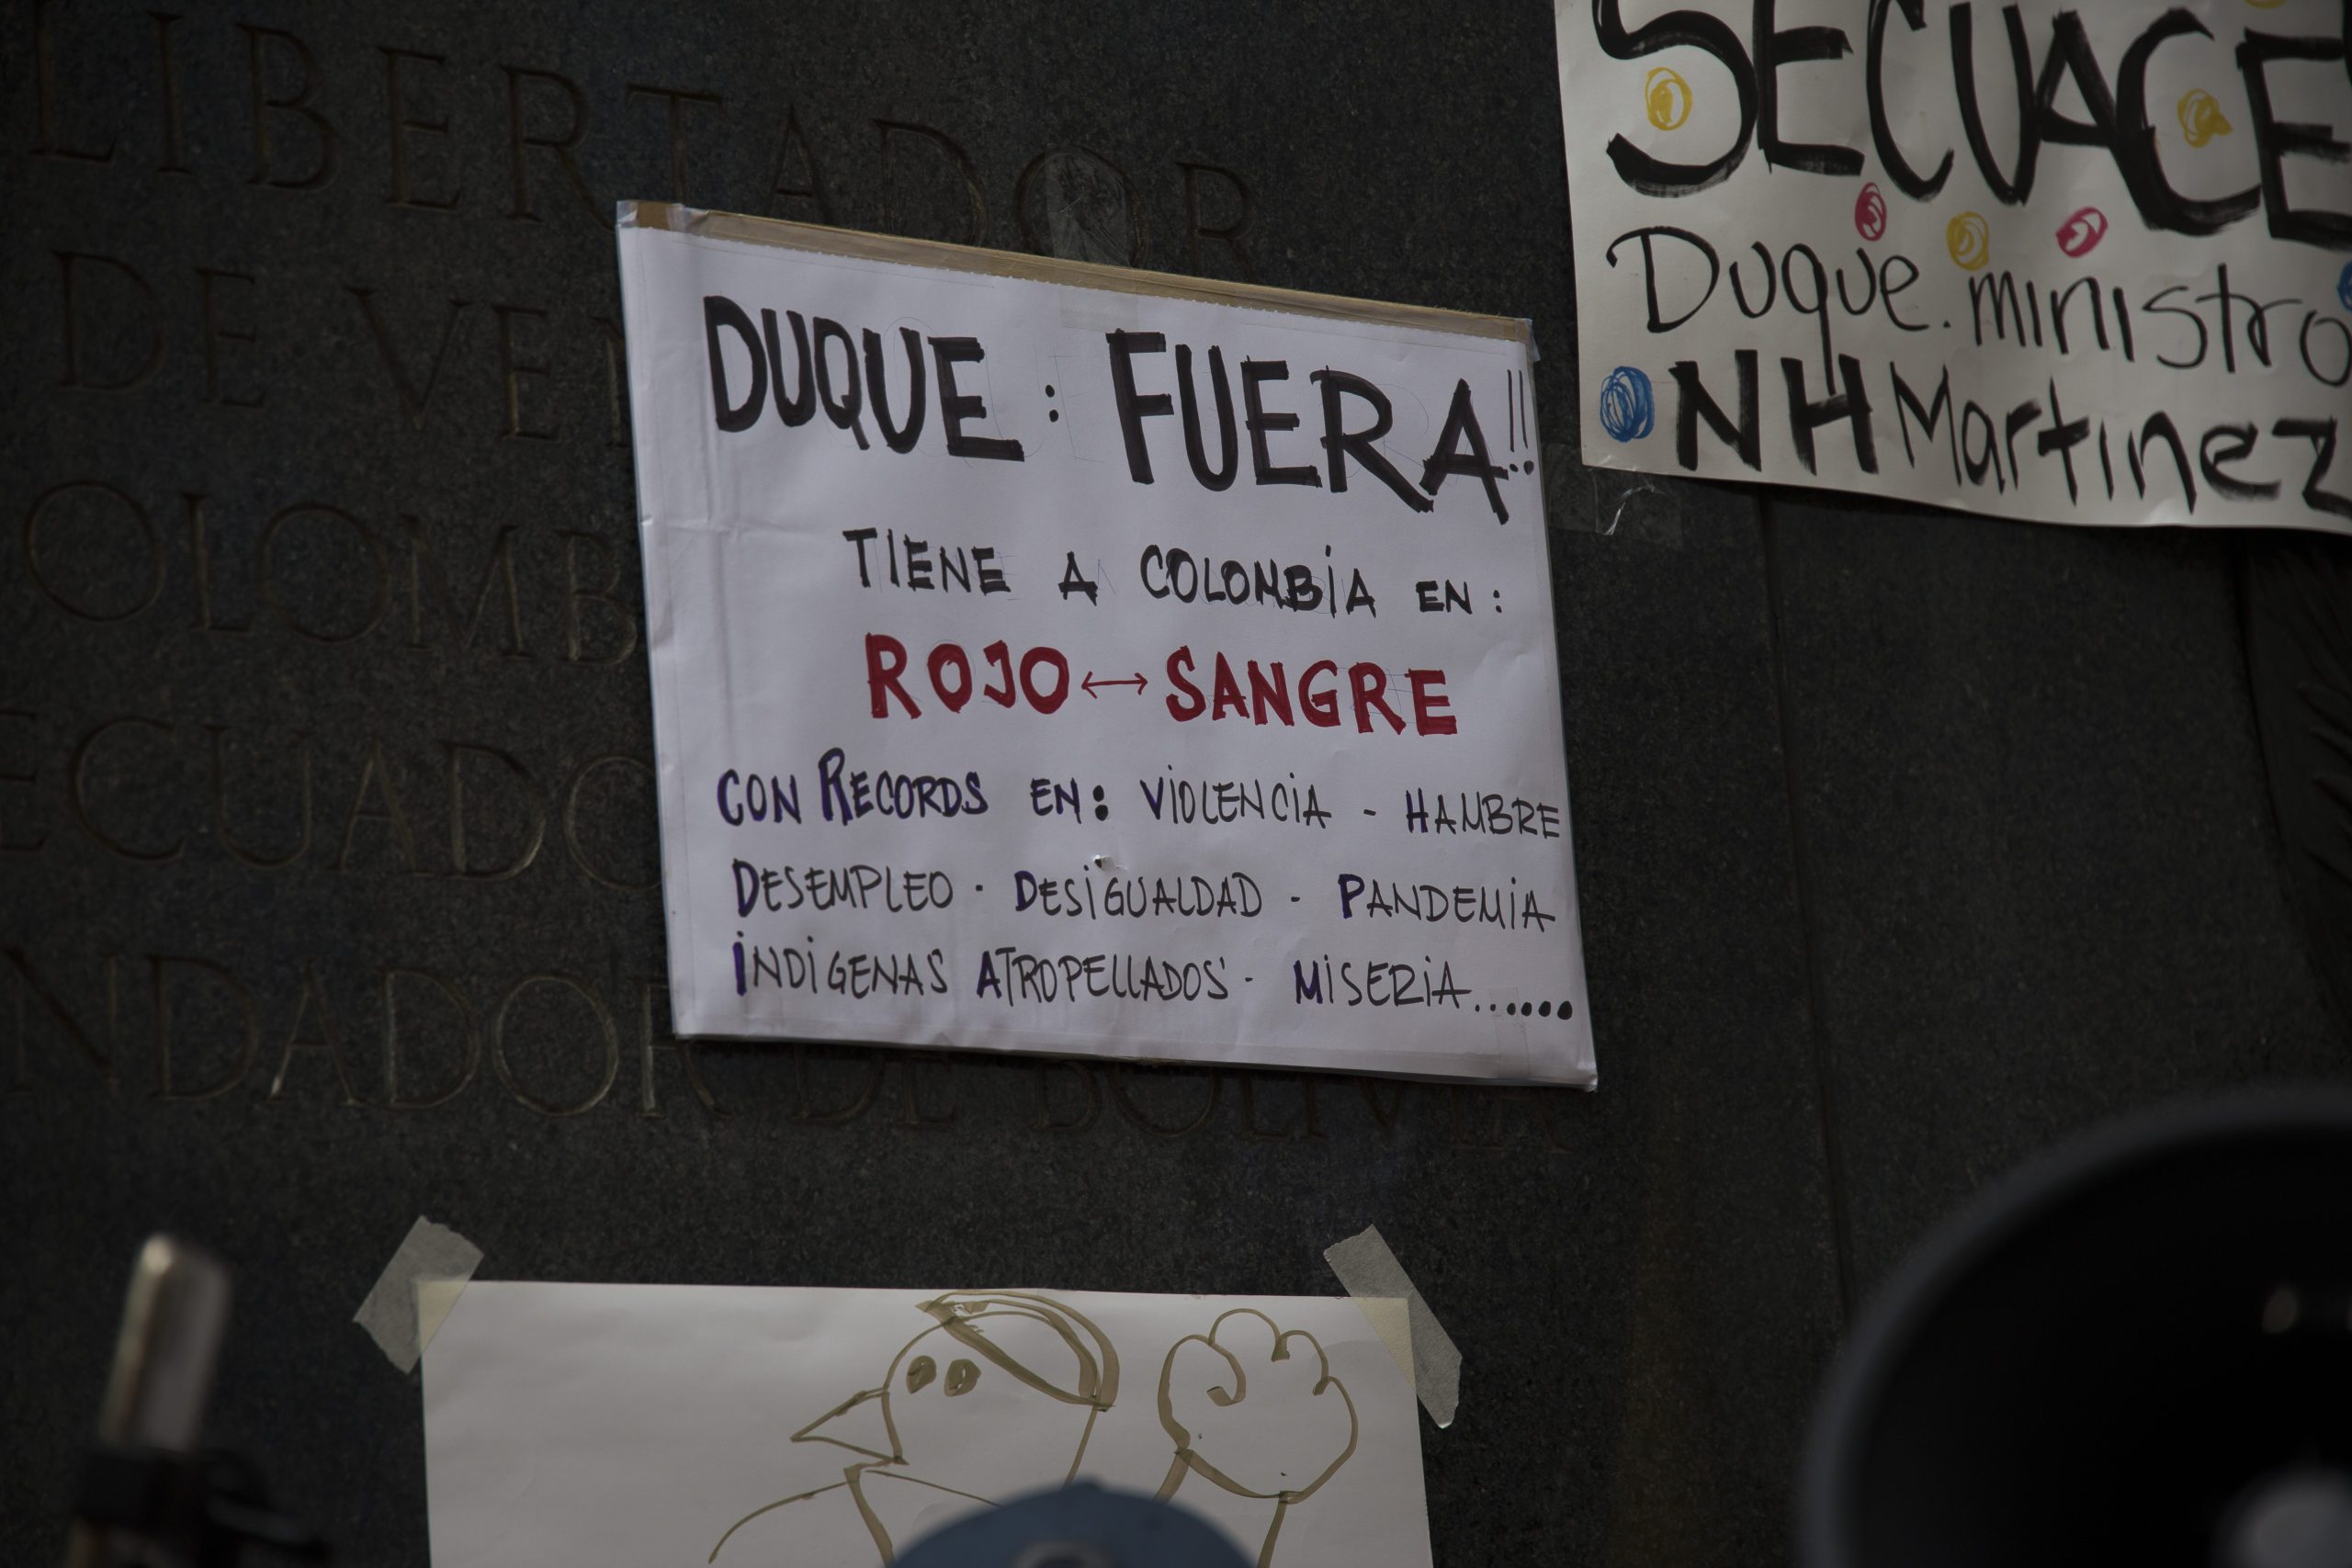 LIBERTADOR
DE VEN
OLOMB
ECUADO
NDADOR DE BOLIVIA
DUQUE : FUERA!!
TIENE A COLOMBIA EN :
ROJO ↔ SANGRE
CON RECORDS EN: VIOLENCIA - HAMBRE
DESEMPLEO · DESIGUALDAD - PANDEMIA
INDIGENAS ATROPELLADOS - MISERIA.......
SECUACE
Duque. ministro
NHMartinez